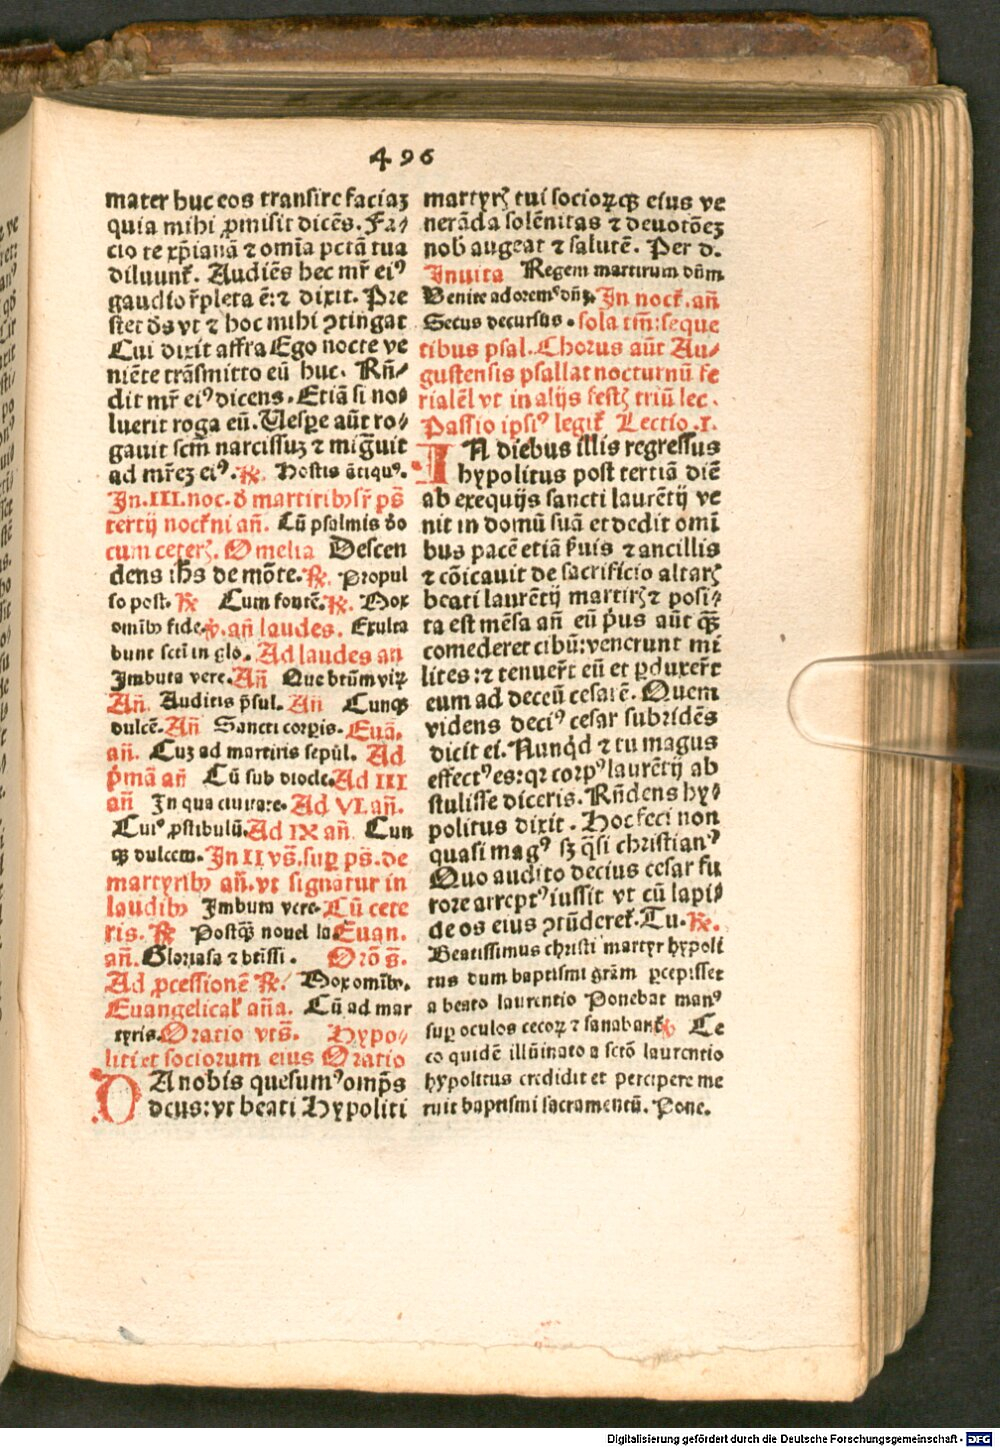 496
mater huc eos transire faciaꝫ
quia mihi ꝓmisit dicēs. Fa⸗
cio te xp̄ianā ⁊ om̄ia pctā tua
diluunt᷑. Audiēs hec mr̄ eiꝰ
gaudio r̄pleta ē: ⁊ dixit. Pre
stet d̄s vt ⁊ hoc mihi ꝯtingat
Cui dixit affra Ego nocte ve
niēte trāsmitto eū huc. Rn̄⸗
dit mr̄ eiꝰ dicens. Etiā si no⸗
luerit roga eū. Uesꝑe aūt ro⸗
gauit scm̄ narcissuꝫ ⁊ mig̃uit
ad mr̄eꝫ eiꝰ. ℟. Hostis ātiquꝰ.
In. III. noc. d̄ martiribꝰ sr̄ ps̄
tertij noct᷑ni an̄. Cū psalmis do
cum ceterꝭ. Omelia Descen
dens ih̄s de mōte. ℟. Propul
so post. ℟ Cum fontē. ℟. Mox
om̄ibꝰ fide. ℣. an̄ laudes. Exulta
bunt scti in glo. Ad laudes an
Imbuta vere. An̄ Que btūm viꝝ
An̄. Auditis p̄sul. An̄ Cunqꝫ
dulcē. An̄ Sancti corꝑis. Euā.
an̄. Cuꝫ ad martiris sepul. Ad
p̄mā an̄ Cū sub diocle. Ad III
an̄ In qua ciuitate. Ad VI. an̄.
Cuiꝰ ꝓstibulū. Ad IX an̄ Cun
qꝫ dulcem. In II vs̄. suꝑ ps̄. de
martyribꝰ an̄. vt signatur in
laudibꝰ Imbuta vere. Cū cete
ris. ℟ Postqꝫ nouel la Euan.
an̄. Gloriosa ⁊ btissi. Orō s̄.
Ad ꝓcessionē ℟. Mox om̄ibꝰ.
Euangelical᷑ an̄a. Cū ad mar
tyris. Oratio vts̄. Hypo⸗
liti et sociorum eius Oratio
DA nobis quesumꝰ omp̄s
deus: vt beati Hypoliti
martyrꝭ tui socioꝝqꝫ eius ve
nerāda solēnitas ⁊ deuotōeꝫ
nob augeat ⁊ salutē. Per d.
Inuita Regem martirum dn̄m
Venite adoremꝰ dn̄ꝫ. In noct᷑. an̄
Secus decursus. sola tm̄: seque
tibus psal. Chorus aūt Au⸗
gustensis psallat nocturnū fe
rialēl vt in alijs festꝭ triū lec.
Passio ipsiꝰ legit᷑ Lectio .I.
IN diebus illis regressus
hypolitus post tertiā diē
ab exequijs sancti laurētij ve
nit in domū suā et dedit omi
bus pacē etiā s̄uis ⁊ ancillis
⁊ cōicauit de sacrificio altarꝭ
beati laurētij martirꝭ ⁊ posi⸗
ta est mēsa an̄ eū p̄us aūt qꝫ
comederet cibū: venerunt mi
lites: ⁊ tenuer̄t eū et ꝑduxer̄t
eum ad deceū cesarē. Quem
videns deciꝰ cesar subridēs
dicit ei. Nunq̇d ⁊ tu magus
effectꝰ es: qꝛ corpꝰ laurētij ab
stulisse diceris. Rn̄dens hy⸗
politus dixit. Hoc feci non
quasi magꝰ sꝫ qͣsi christianꝰ
Quo audito decius cesar fu
rore arreptꝰ iussit vt cū lapi⸗
de os eius ꝯtūderet᷑. Tu. ℟.
Beatissimus christi martyr hypoli
tus dum baptismi grām ꝑcepisset
a beato laurentio Ponebat manꝰ
suꝑ oculos cecoꝝ ⁊ sanabant᷑ ℣ Ce
co quidē illūinato a scto laurentio
hypolitus credidit et percipere me
ruit baptismi sacramentū. Pone.
Digitalisierung gefördert durch die Deutsche Forschungsgemeinschaft - DFG